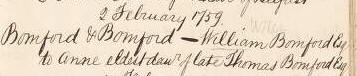 2 February 1759.
Bomford & Bomford — William Bomford Esq
to Anne eldest daur of late Thomas Bomford Esq